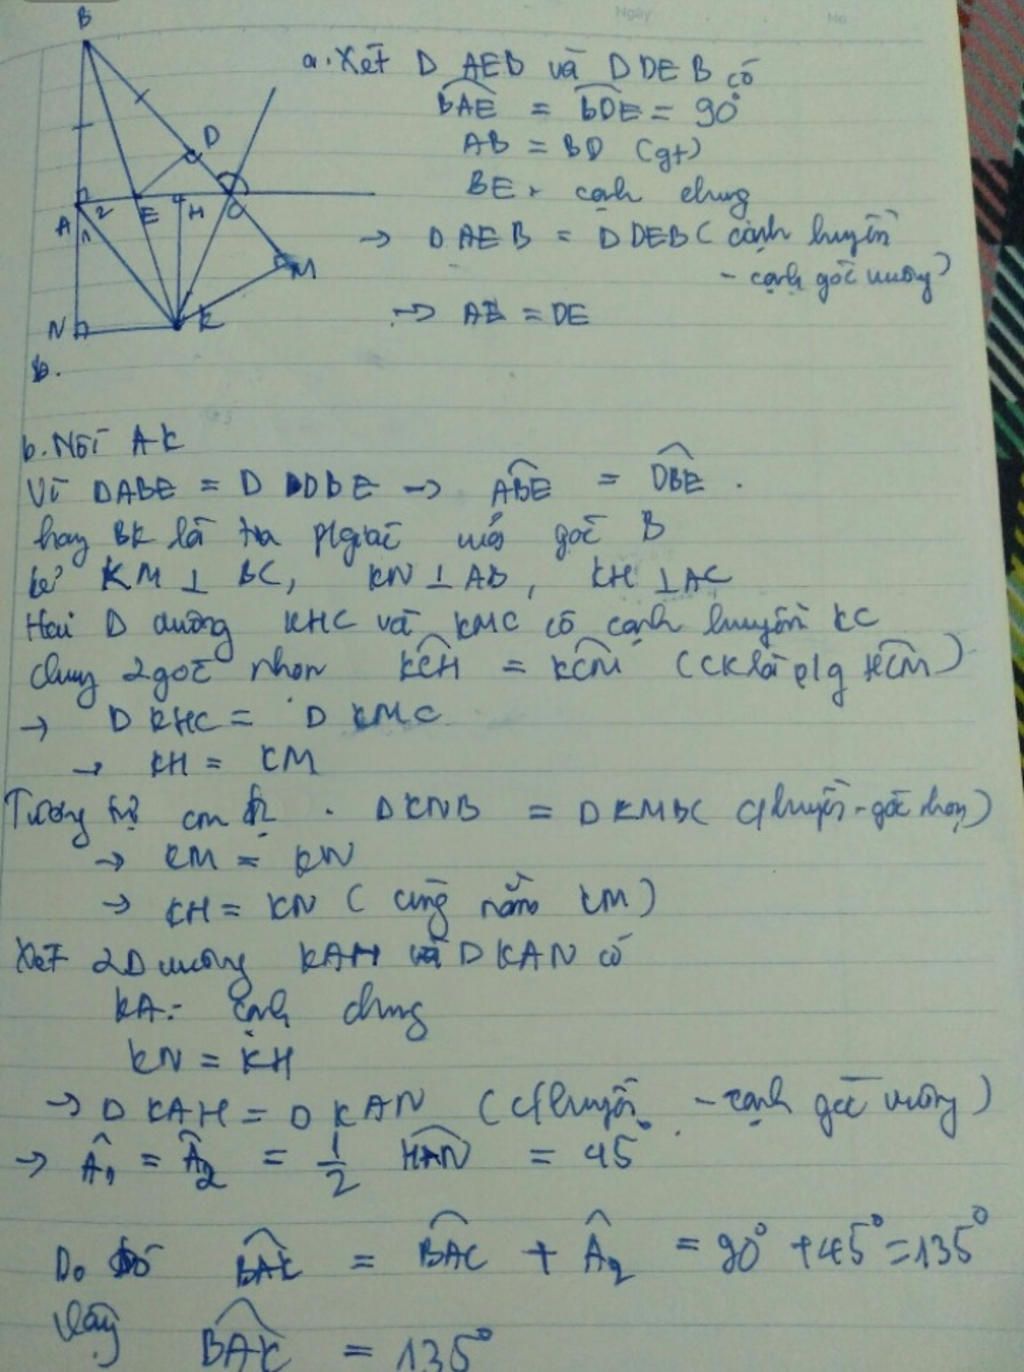 Ngày No
B
D
A 2 E H C
1
M
N K
a. Xét D AEB và D DEB có
BAE = BDE = 90°
AB = BD (gt)
BE: cạnh chung
→ D AEB = D DEB (cạnh huyền
- cạnh góc vuông)
→ AE = DE
b.
b. Nối AK
Vì DABE = D DBE → ABE = DBE.
hay BK là tia p/giác của góc B
kẻ KM ⊥ BC, KN ⊥ AB, KH ⊥ AC
Hai D vuông KHC và KMC có cạnh huyền KC
chung 2 góc nhọn KCH = KCM (CK là p/g HCM)
→ D KHC = D KMC
→ KH = KM
Tương tự cm đc. DKNB = DKMB (c/huyền - góc nhọn)
→ KM = KN
→ KH = KN (cùng KM)
Xét 2D vuông KAH và D KAN có
KA: cạnh chung
KN = KH
→ D KAH = D KAN (c/huyền - cạnh góc vuông)
→ Â1 = Â2 = 1/2 HAN = 45°
Do đó BAK = BAC + Â2 = 90° + 45° = 135°
Vậy BAK = 135°